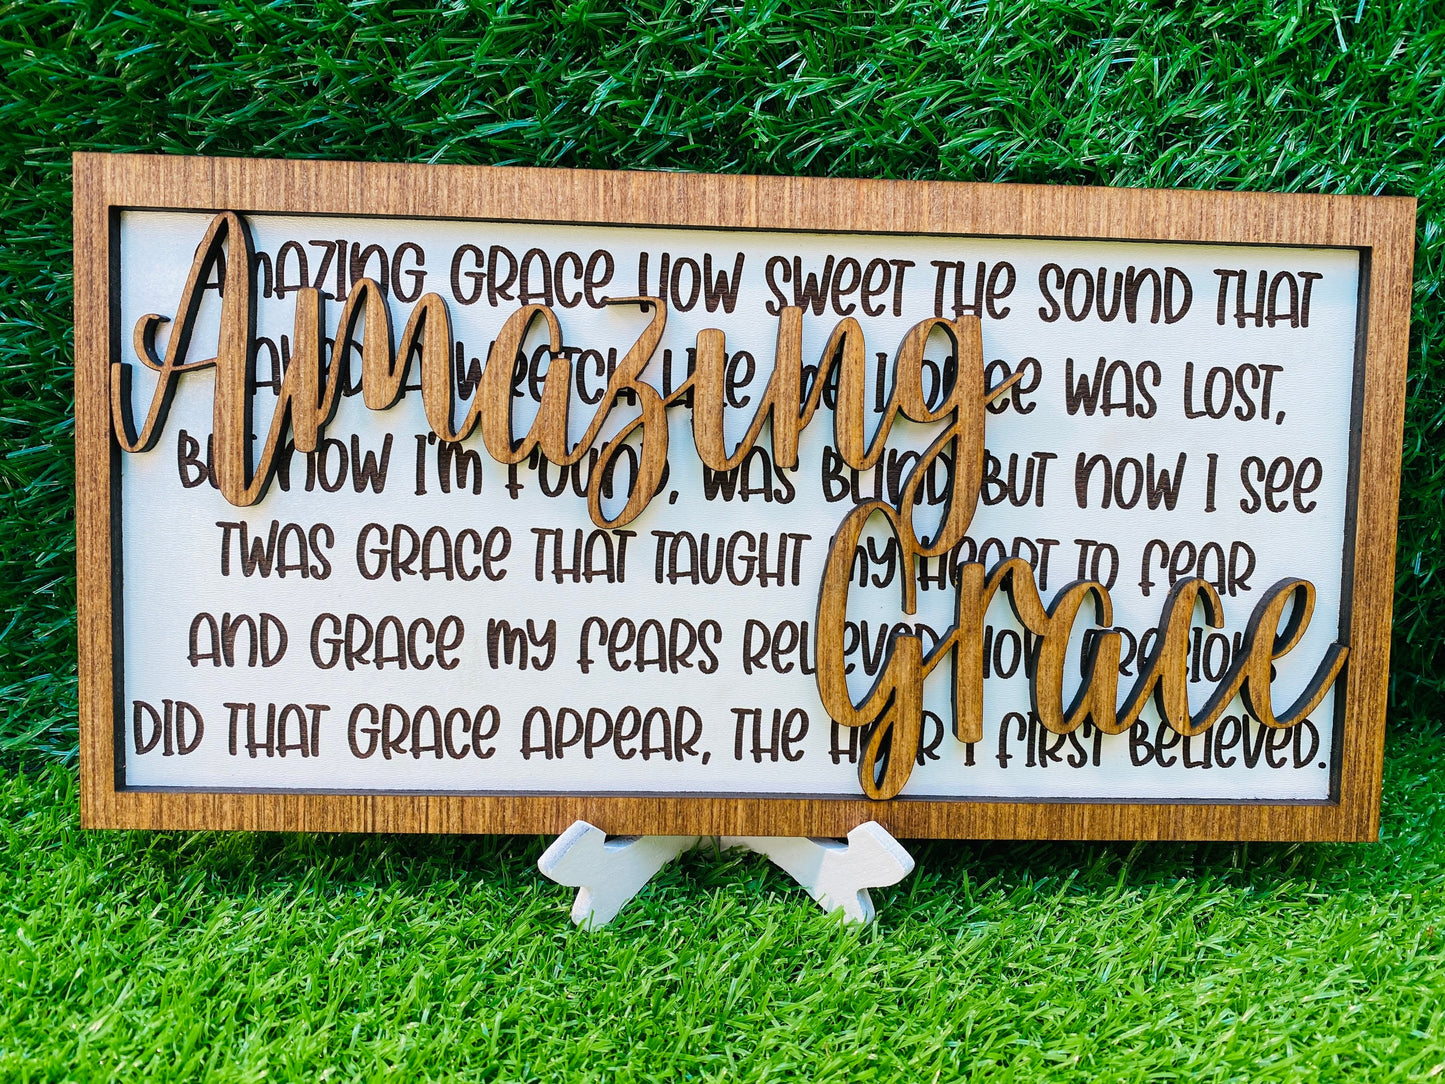 Amazing
Grace
AMAZING GRACE HOW SWEET THE SOUND THAT
SAVED A WRETCH LIKE ME I ONCE WAS LOST,
BUT NOW I'M FOUND, WAS BLIND BUT NOW I SEE
TWAS GRACE THAT TAUGHT MY HEART TO FEAR
AND GRACE MY FEARS RELIEVED HOW PRECIOUS
DID THAT GRACE APPEAR, THE HOUR I FIRST BELIEVED.